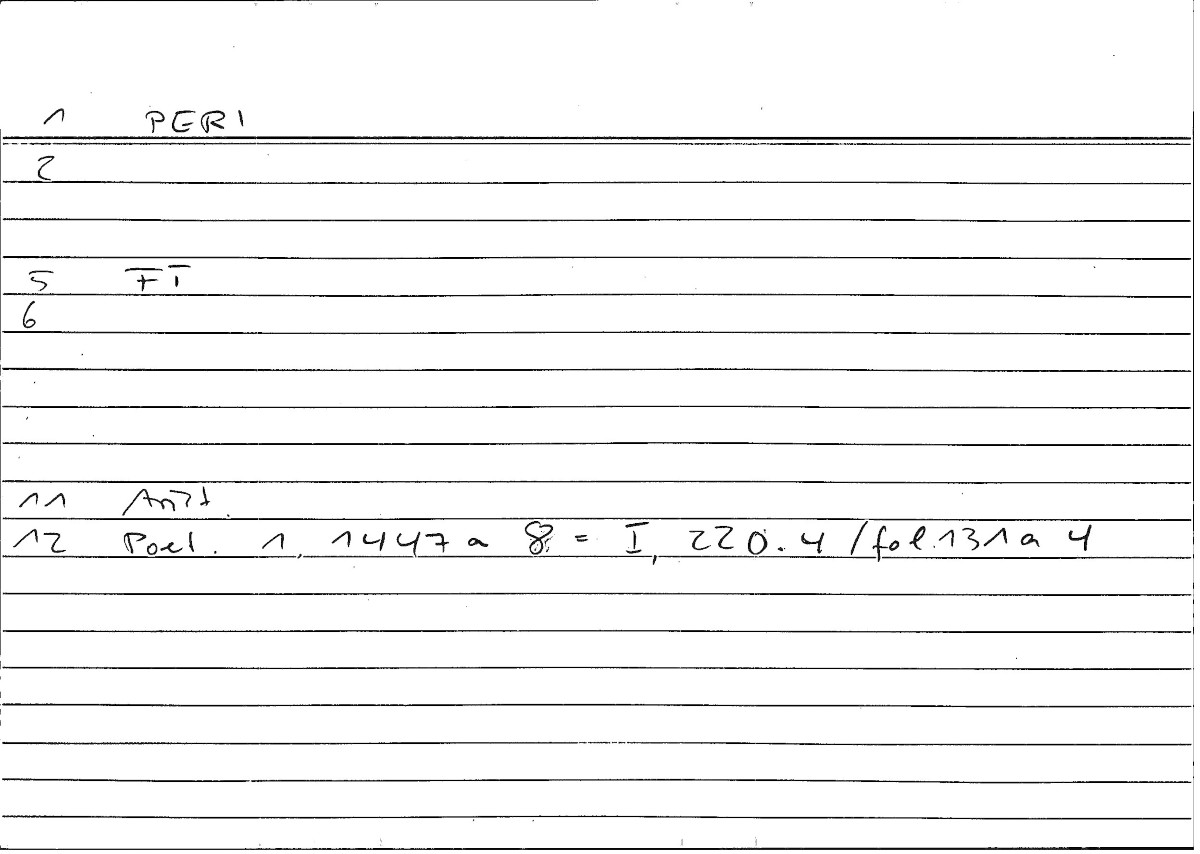 1 PERI
2
5 FĪ
6
11
12 Poet. 1, 1447 a 8 = I, 220.4 /fol.131a 4